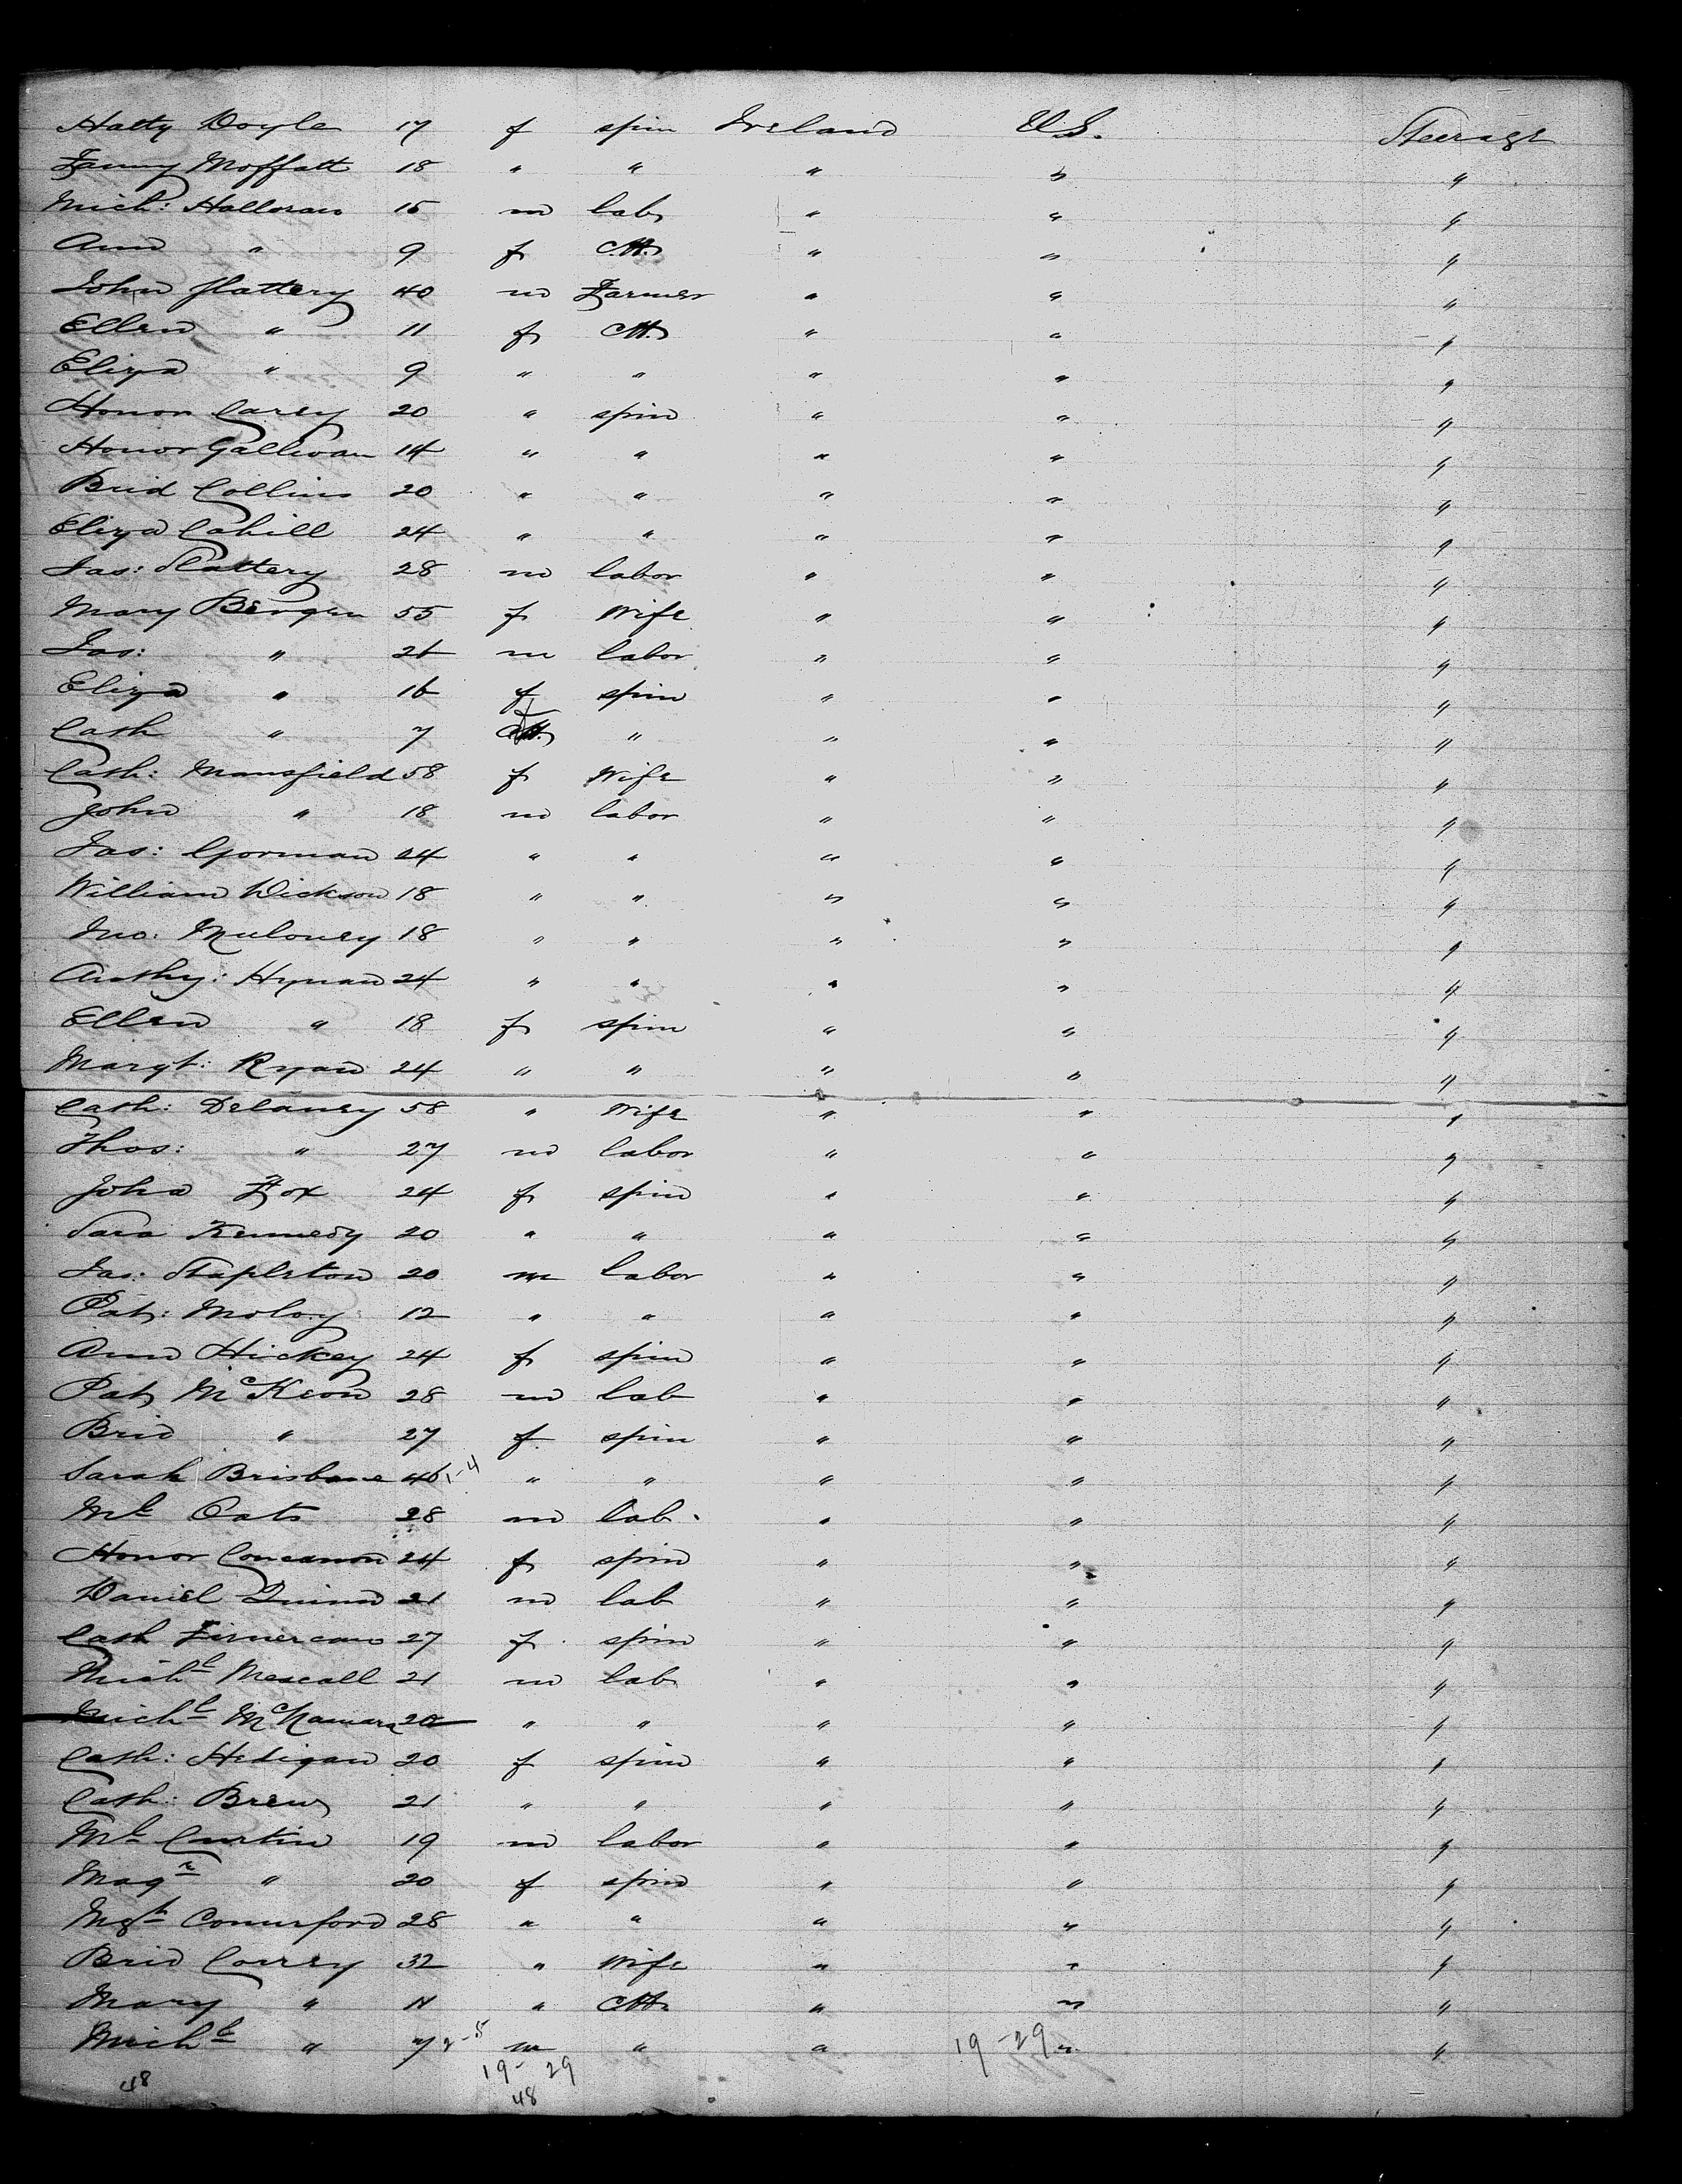 Hatty Doyle 17 f spin Ireland U.S. Steerage
Fanny Moffatt 18 " " " " "
Mich: Halloran 15 m lab " " "
Ann " 9 f Ch. " " "
John Slattery 40 m Farmer " " "
Ellen " 11 f Ch. " " "
Eliza " 9 " " " " "
Honor Carey 20 " spin " " "
Honor Gallivan 14 " " " " "
Brid Collins 20 " " " " "
Eliza Cahill 24 " " " " "
Jas: Slattery 28 m labor " " "
Mary Bergen 55 f Wife " " "
Jas: " 21 m labor " " "
Eliza " 16 f spin " " "
Cath " 7 f " " " "
Cath: Mansfield 58 f Wife " " "
John " 18 m labor " " "
Jas: Gorman 24 " " " " "
William Dickson 18 " " " " "
Jno: Muloney 18 " " " " "
Anthy: Hynan 24 " " " " "
Ellen " 18 f spin " " "
Margt: Ryan 24 " " " " "
Cath: Delaney 58 " Wife " " "
Thos: " 27 m labor " " "
Joha Fox 24 f spin " " "
Sara Kennedy 20 " " " " "
Jas: Stapleton 20 m labor " " "
Pat: Moloy 12 " " " " "
Ann Hickey 24 f spin " " "
Pat McKeon 28 m lab " " "
Brid " 27 f spin " " "
Sarah Brisbane 46 1-4 " " " " "
Ml Oats 28 m lab. " " "
Honor Concanon 24 f spin " " "
Daniel Quinn 21 m lab " " "
Cath Finnercan 27 f spin " " "
Michl Mescall 21 m lab " " "
Michl McNamara 20 " " " " "
Cath: Hedigan 20 f spin " " "
Cath: Brew 21 " " " " "
Ml Curtin 19 m labor " " "
Magr " 20 f spin " " "
Mgt Comerford 28 " " " " "
Brid Correy 32 " Wife " " "
Mary " 11 " Ch. " " "
Michl " 7 2-5 m " " 19-29 " "
19-29
48 48